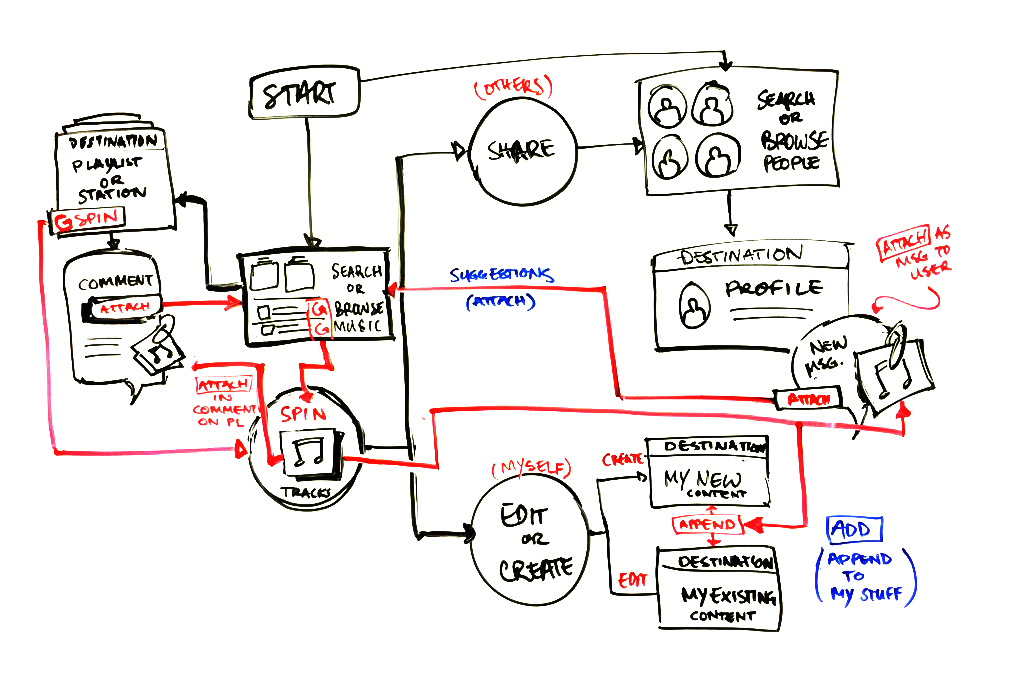 START
(OTHERS)
SHARE
SEARCH
OR
BROWSE
PEOPLE
DESTINATION
PLAYLIST
OR
STATION
SPIN
COMMENT
ATTACH
SEARCH
OR
BROWSE
MUSIC
SUGGESTIONS
(ATTACH)
DESTINATION
PROFILE
ATTACH AS
MSG TO
USER
NEW
MSG.
ATTACH
ATTACH
IN
COMMENT
ON PL
SPIN
TRACKS
(MYSELF)
EDIT
OR
CREATE
CREATE
EDIT
DESTINATION
MY NEW
CONTENT
APPEND
DESTINATION
MY EXISTING
CONTENT
ADD
(APPEND
TO
MY STUFF)